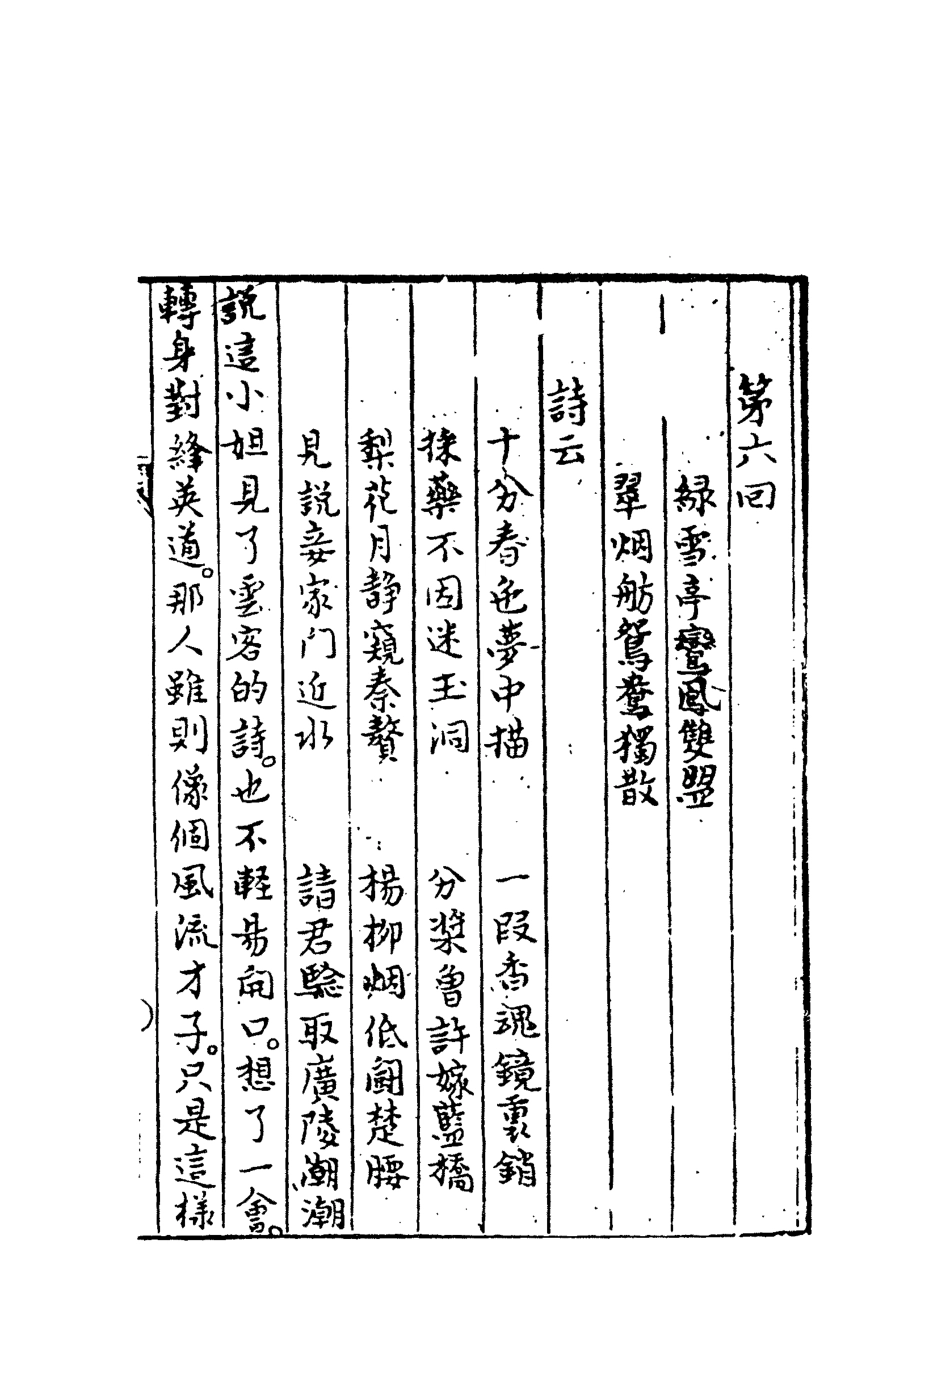 第六回
緑雪亭鸞鳳雙盟
翠烟舫鴛鴦獨散
詩云
十分春色夢中描　一段香魂鏡裏銷
採藥不因迷玉洞　分槳曾許嫁藍橋
梨花月静窺秦贅　楊柳烟低鬭楚腰
見説妾家門近水　請君騐取廣陵潮潮
説這小姐見了雲客的詩。也不軽易開口。想了一會。
轉身對絳英道。那人雖則像個風流才子。只是這樣